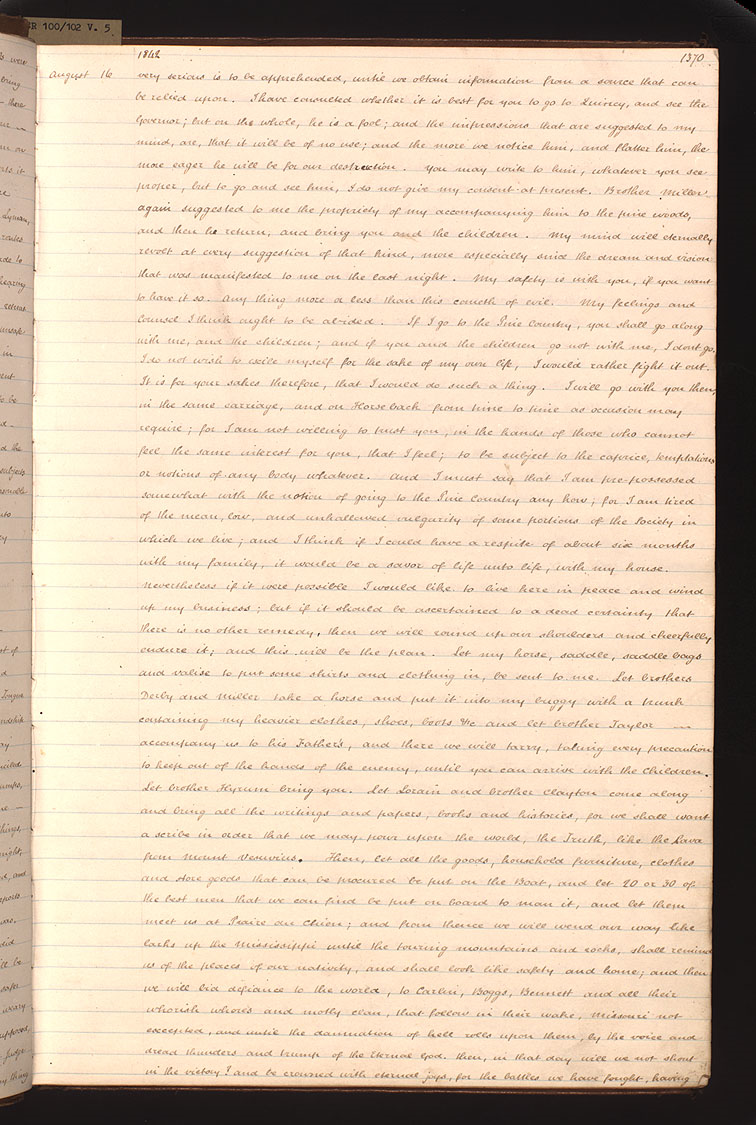 R 100/102 V. 5
1842
1370
August 16 very serious is to be apprehended, until we obtain information from a source that can
be relied upon. I have consulted whether it is best for you to go to Quincy, and see the
Governor; but on the whole, he is a fool; and the impressions that are suggested to my
mind, are, that it will be of no use; and the more we notice him, and flatter him, the
more eager he will be for our destruction. You may write to him, whatever you see
proper, but to go and see him, I do not give my consent at present. Brother Miller
again suggested to me the propriety of my accompanying him to the pine woods,
and then he return, and bring you and the children. My mind will eternally
revolt at every suggestion of that kind, more especially since the dream and vision
that was manifested to me on the last night. My safety is with you, if you want
to have it so. Any thing more or less than this cometh of evil. My feelings and
Counsel I think ought to be abided. If I go to the Pine Country, you shall go along
with me, and the children; and if you and the children go not with me, I dont go.
I do not wish to exile myself for the sake of my own life, I would rather fight it out.
It is for your sakes therefore, that I would do such a thing. I will go with you then,
in the same carriage, and on Horseback from time to time as occasion may
require; for I am not willing to trust you, in the hands of those who cannot
feel the same interest for you, that I feel; to be subject to the caprice, temptations
or notions of any body whatever. And I must say that I am pre-possessed
somewhat with the notion of going to the Pine Country any how; for I am tired
of the mean, low, and unhallowed vulgarity of some portions of the Society in
which we live; and I think if I could have a respite of about six months
with my family, it would be a savor of life unto life, with my house.
Nevertheless if it were possible I would like to live here in peace and wind
up my business; but if it should be ascertained to a dead certainty that
there is no other remedy, then we will round up our shoulders and cheerfully
endure it; and this will be the plan. Let my horse, saddle, saddle bags
and valise to put some shirts and clothing in, be sent to me. Let brothers
Derby and Miller take a horse and put it into my buggy with a trunk
containing my heavier clothes, shoes, boots &c and let brother Taylor —
accompany us to his Father's, and there we will tarry, taking every precaution
to keep out of the hands of the enemy, until you can arrive with the children.
Let brother Hyrum bring you. Let Lorain and brother Clayton come along
and bring all the writings and papers, books and histories, for we shall want
a scribe in order that we may pour upon the world, the Truth, like the Lava
from Mount Vesuvius. Then, let all the goods, household furniture, clothes
and store goods that can be procured be put on the Boat, and let 20 or 30 of
the best men that we can find be put on board to man it, and let them
meet us at Praire du Chien; and from thence we will wend our way like
larks up the Mississippi until the touring mountains and rocks, shall remind
us of the places of our nativity, and shall look like safety and home; and then
we will bid defiance to the world, to Carlin, Boggs, Bennett and all their
whorish whores and motly clan, that follow in their wake, Missouri not
excepted, and until the damnation of hell rolls upon them, by the voice and
dread thunders and trump of the Eternal God. then, in that day will we not shout
in the victory? and be crowned with eternal joys, for the battles we have fought, having